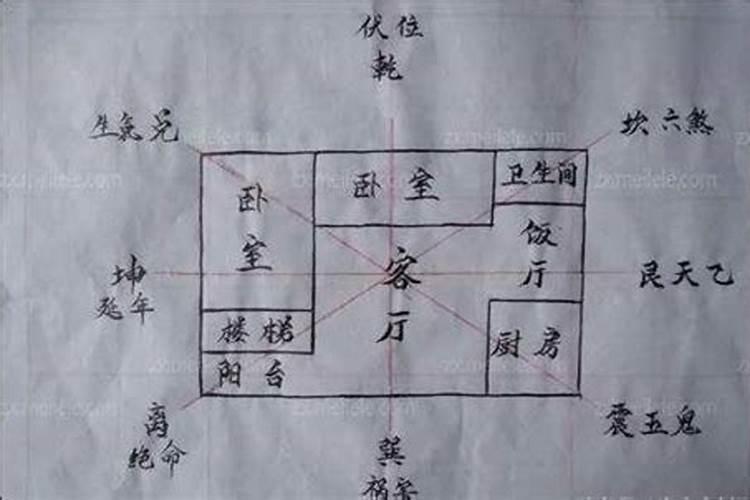 伏位
乾
生氣兑
坎六煞
卧室
卧室
卫生间
饭厅
客厅
坤
延年
艮天乙
楼梯
厨房
阳台
离
绝命
震五鬼
巽
祸害
zxmeilele.com